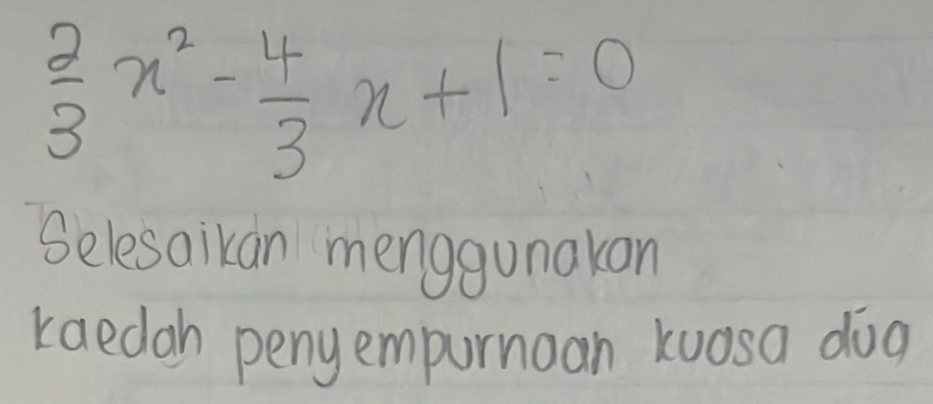 2/3 x² - 4/3 x + 1 = 0
Selesaikan menggunakan
kaedah penyempurnaan kuasa dua